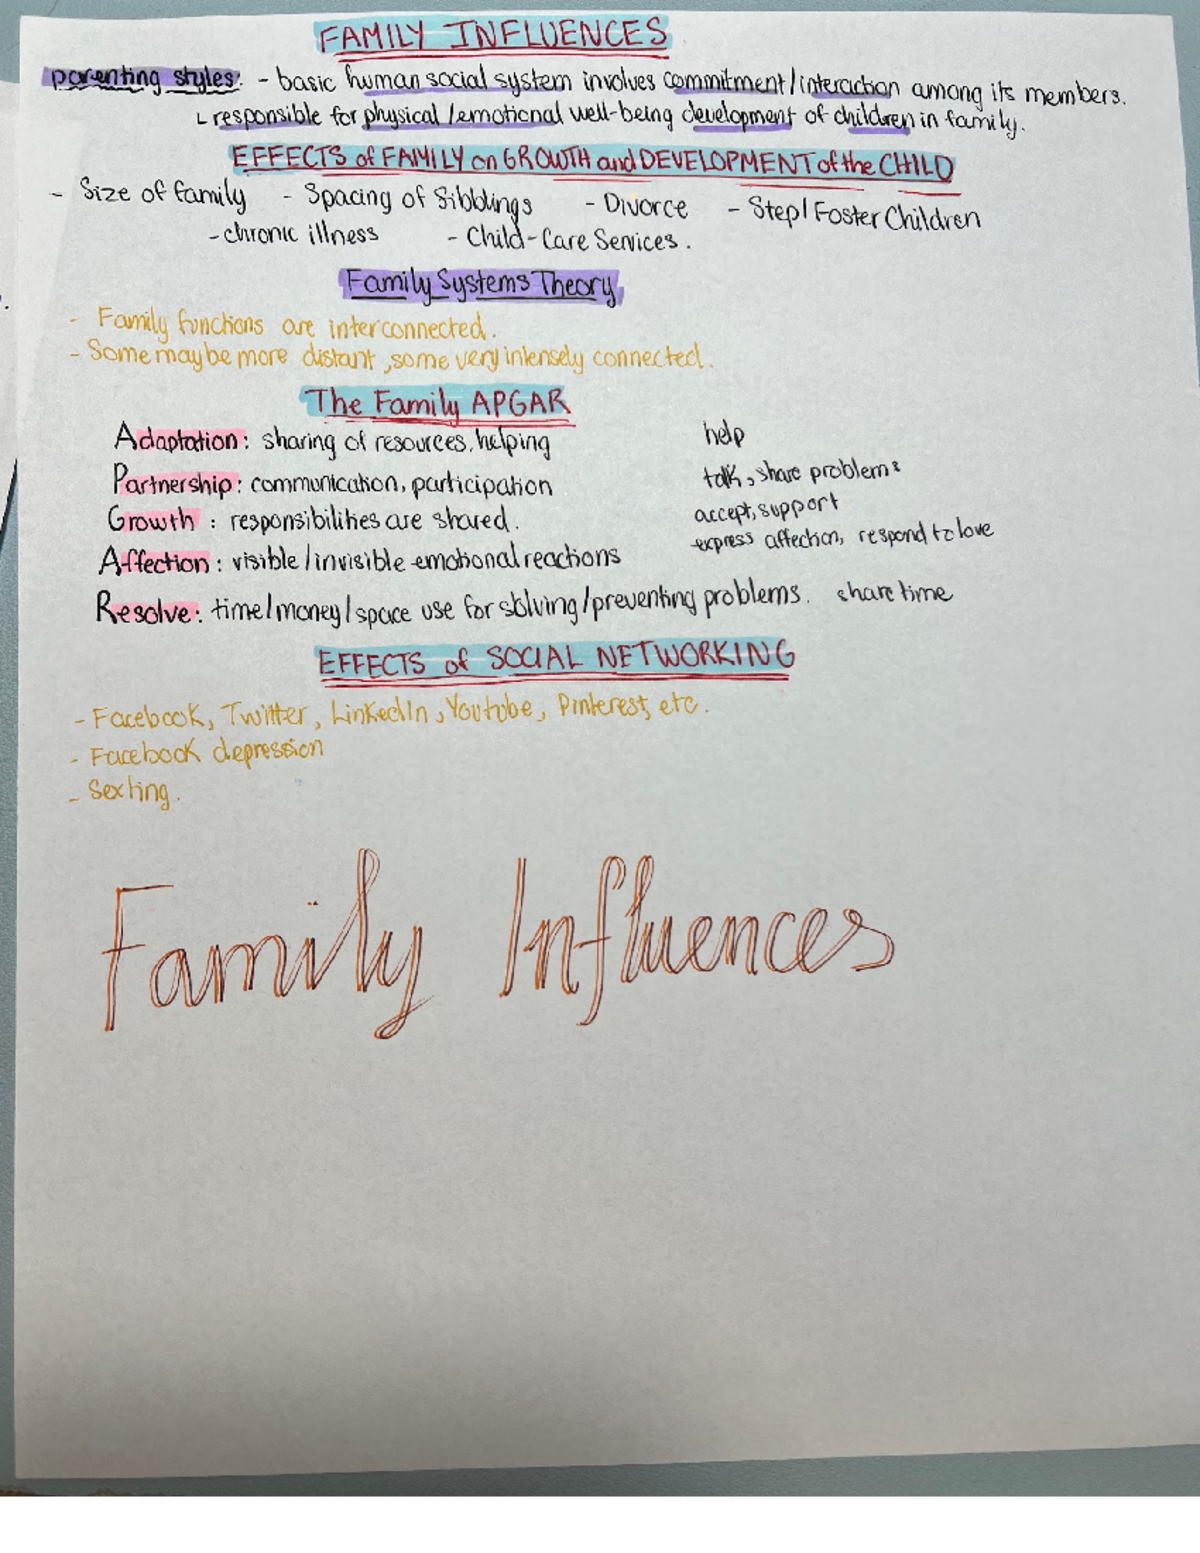 FAMILY INFLUENCES
parenting styles: - basic human social system involves commitment/interaction among its members.
responsible for physical/emotional well-being development of children in family.
EFFECTS of FAMILY on GROWTH and DEVELOPMENT of the CHILD
- Size of family - Spacing of Sibblings - Divorce - Step/Foster Children
- chronic illness - Child-Care Services.
Family Systems Theory
- Family functions are interconnected.
- Some may be more distant, some very intensely connected.
The Family APGAR
Adaptation: sharing of resources, helping help
Partnership: communication, participation talk, share problems
Growth: responsibilities are shared. accept, support
Affection: visible/invisible emotional reactions express affection, respond to love
Resolve: time/money/space use for solving/preventing problems. share time
EFFECTS of SOCIAL NETWORKING
- Facebook, Twitter, LinkedIn, Youtube, Pinterest, etc.
- Facebook depression
- Sexting.
Family Influences